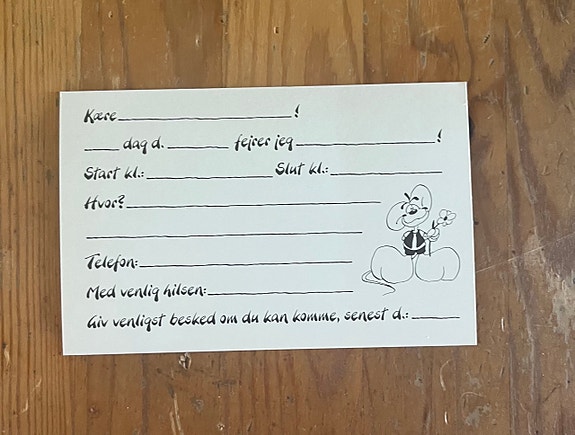 Kære____________________!
____ dag d. _______ fejrer jeg________________!
Start kl.:______________ Slut kl.:____________
Hvor?____________________________
______________________________
Telefon:________________________
Med venlig hilsen:________________
Giv venligst besked om du kan komme, senest d.:_____